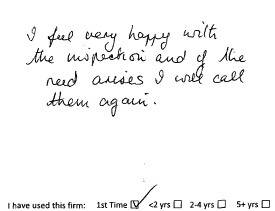 I feel very happy with
the inspection and if the
need arises I will call
them again.
I have used this firm: 1st Time ☑ <2 yrs ☐ 2-4 yrs ☐ 5+ yrs ☐